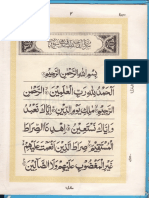 ٢
بِسْمِ اللهِ الرَّحْمٰنِ الرَّحِيْمِ
اَلْحَمْدُ لِلّٰهِ رَبِّ الْعٰلَمِيْنَ الرَّحْمٰنِ
الرَّحِيْمِ مٰلِكِ يَوْمِ الدِّيْنِ اِيَّاكَ نَعْبُدُ
وَاِيَّاكَ نَسْتَعِيْنُ اِهْدِنَا الصِّرَاطَ
الْمُسْتَقِيْمَ صِرَاطَ الَّذِيْنَ اَنْعَمْتَ عَلَيْهِمْ
غَيْرِ الْمَغْضُوْبِ عَلَيْهِمْ وَلَا الضَّآلِّيْنَ